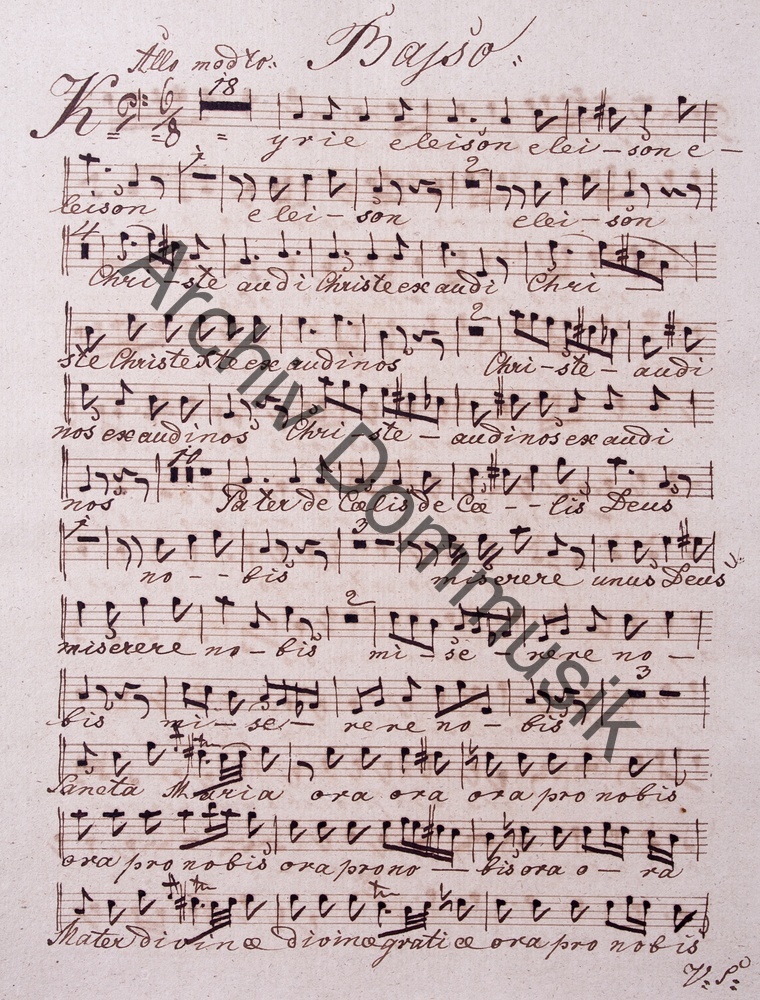 Allo modto:. Basso.:
18
Kyrie eleison elei-son e-
1 2
leison elei-son elei-son
4
Chri-ste audi Christe exaudi Chri-
2
ste Christe exaudinos Chri-ste-audi
nos exaudinos Chri-ste-audinos exaudi
10
nos Pater de Cœlis de Cœ--lis Deus
1 3
no--bis miserere unus Deus
2
miserere no-bis mi-se-rere no-
3
bis mi-se-rere no-bis
Sancta Maria ora ora ora pro nobis
ora pro nobis ora pro no-bis ora o-ra
Mater divinæ divinæ gratiæ ora pro nobis
V: S:
Archiv Dommusik